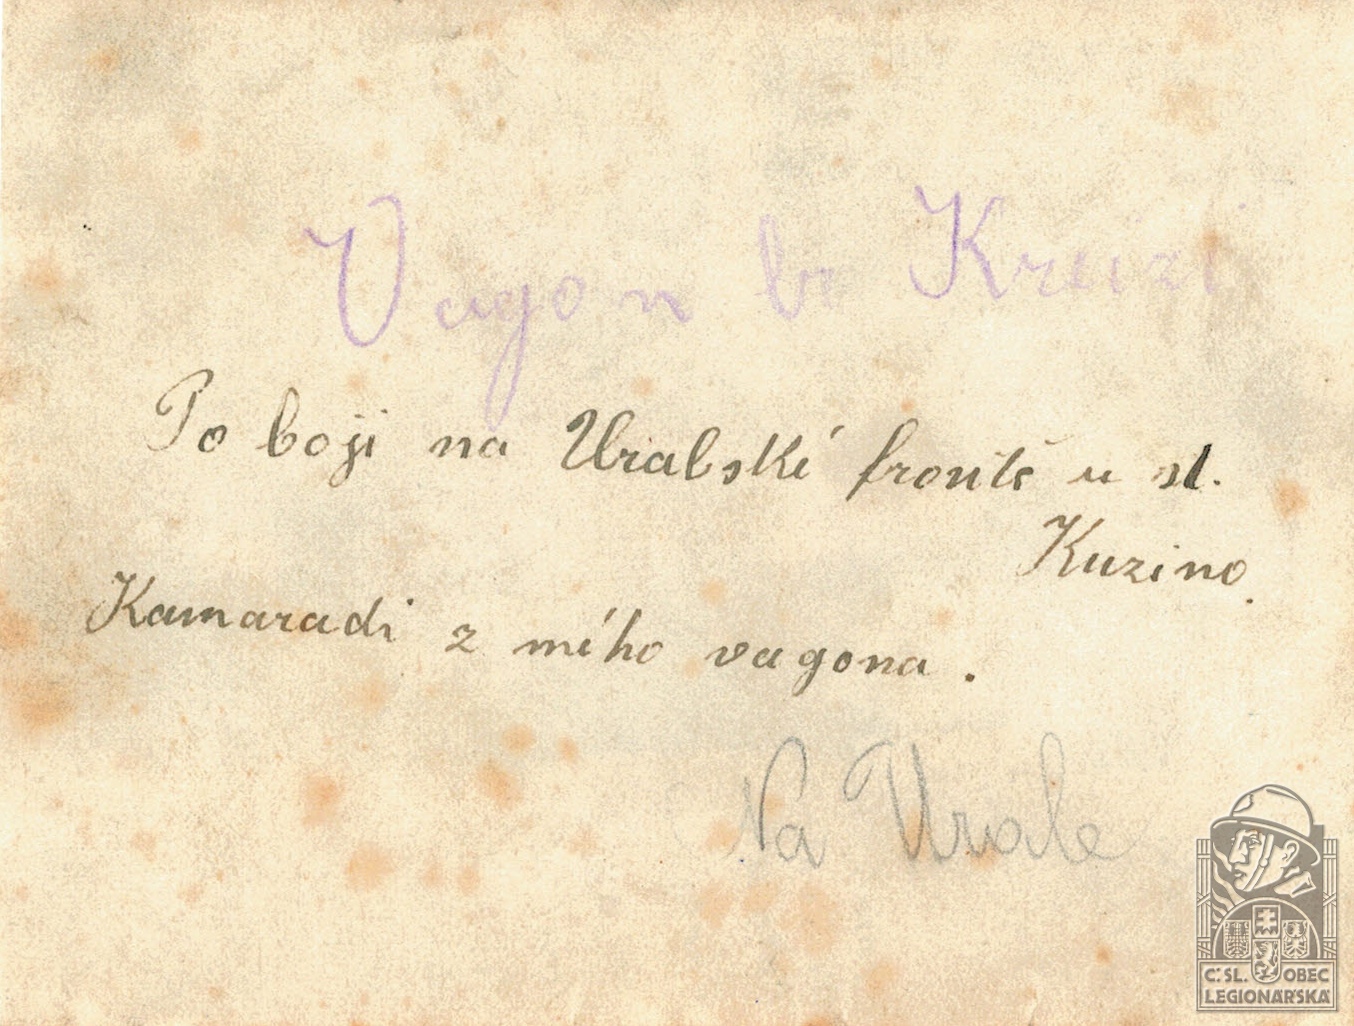 Vagon br Kruzi
Po boji na Uralské frontě u st.
Kuzino.
Kamaradi z mího vagona.
Na Urale
Č. SL. OBEC
LEGIONÁŘSKÁ